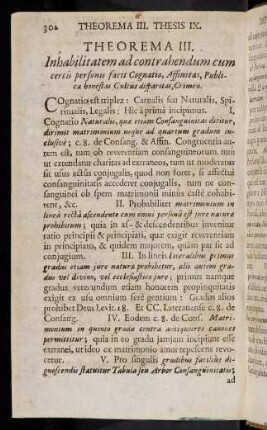 302 THEOREMA III. THESIS IX.
THEOREMA III.
Inhabilitatem ad contrahendum cum
certis personis facit Cognatio, Affinitas, Publi-
ca honestas Cultus disparitas, Crimen.
COgnatio est triplex: Carnalis seu Naturalis, Spi-
ritualis, Legalis: Hic à prima incipimus. I.
Cognatio Naturalis, quæ etiam Consanguinitas dicitur,
dirimit matrimonium usque ad quartum gradum in-
clusivè; c. 8. de Consang. & Affin. Congruentia au-
tem est, tum ob reverentiam consanguineorum, tum
ut extendatur charitas ad extraneos, tum ut moderatus
sit usus actûs conjugalis, quod non foret, si affectui
consanguinitatis accederet conjugalis, tum ne consan-
guinei ob spem matrimonii minùs castè cohabi-
tent, &c. II. Probabiliter matrimonium in
linea recta ascendente cum omni persona est jure naturæ
prohibitum; quia in as- & descendentibus invenitur
ratio principii & principiati, quæ exigit reverentiam
in principiato, & quidem majorem, quàm pat sit ad
conjugium. III. In lineis lateralibus primus
gradus etiam jure naturæ prohibetur, alii autem gra-
dus vel divino, vel ecclesiastico jure; primus namque
gradus verecundum etiam honorem propinquitatis
exigit ex usu omnium ferè gentium: Gradus alios
prohibet Deus Levit. 18. Et CC. Lateranense c. 8. de
Consang. IV. Eodem c. 8. de Cons. Matri-
monium in quinto gradu contra antiquiores canones
permittitur; quia in eo gradu jamjam incipiunt esse
extranei, ut ideo ex matrimonio amor tepescens revo-
cetur. V. Pro singulis gradibus faciliùs di-
gnoscendis statuitur Tabula seu Arbor Consanguinitatis;
ad